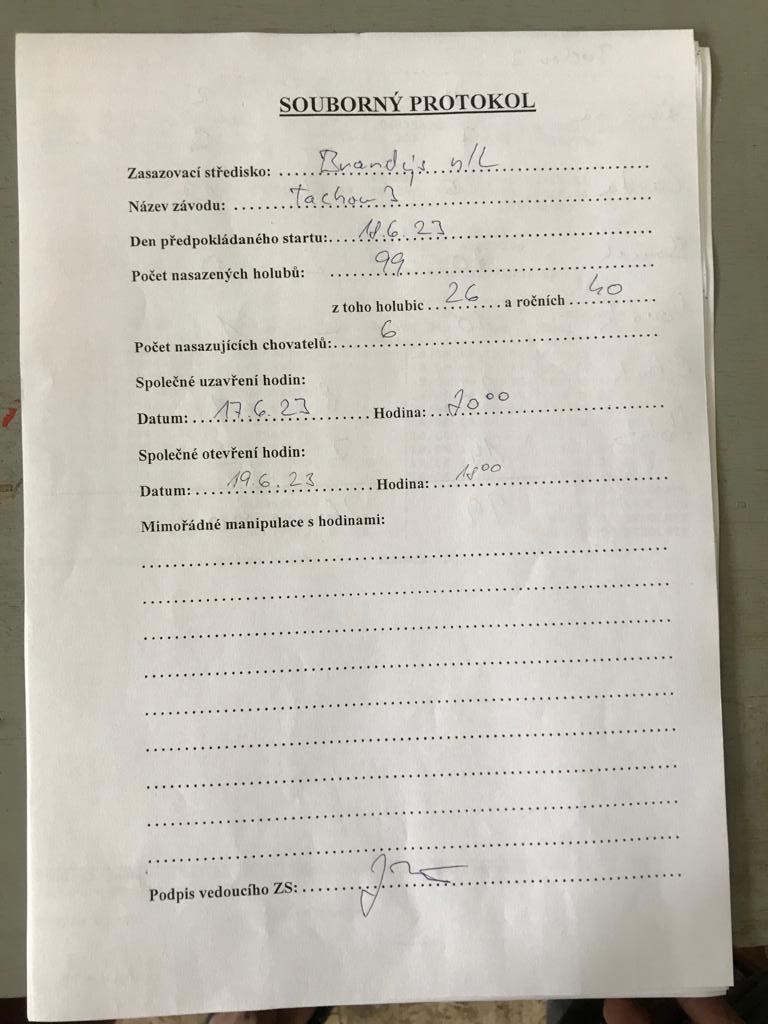 SOUBORNÝ PROTOKOL
Zasazovací středisko: Brandýs n/L
Název závodu: Tachov 3
Den předpokládaného startu: 18.6.23
Počet nasazených holubů: 99
z toho holubic 26 a ročních 40
Počet nasazujících chovatelů: 6
Společné uzavření hodin:
Datum: 17.6.23 Hodina: 20 00
Společné otevření hodin:
Datum: 19.6.23 Hodina: 18 00
Mimořádné manipulace s hodinami:
Podpis vedoucího ZS: